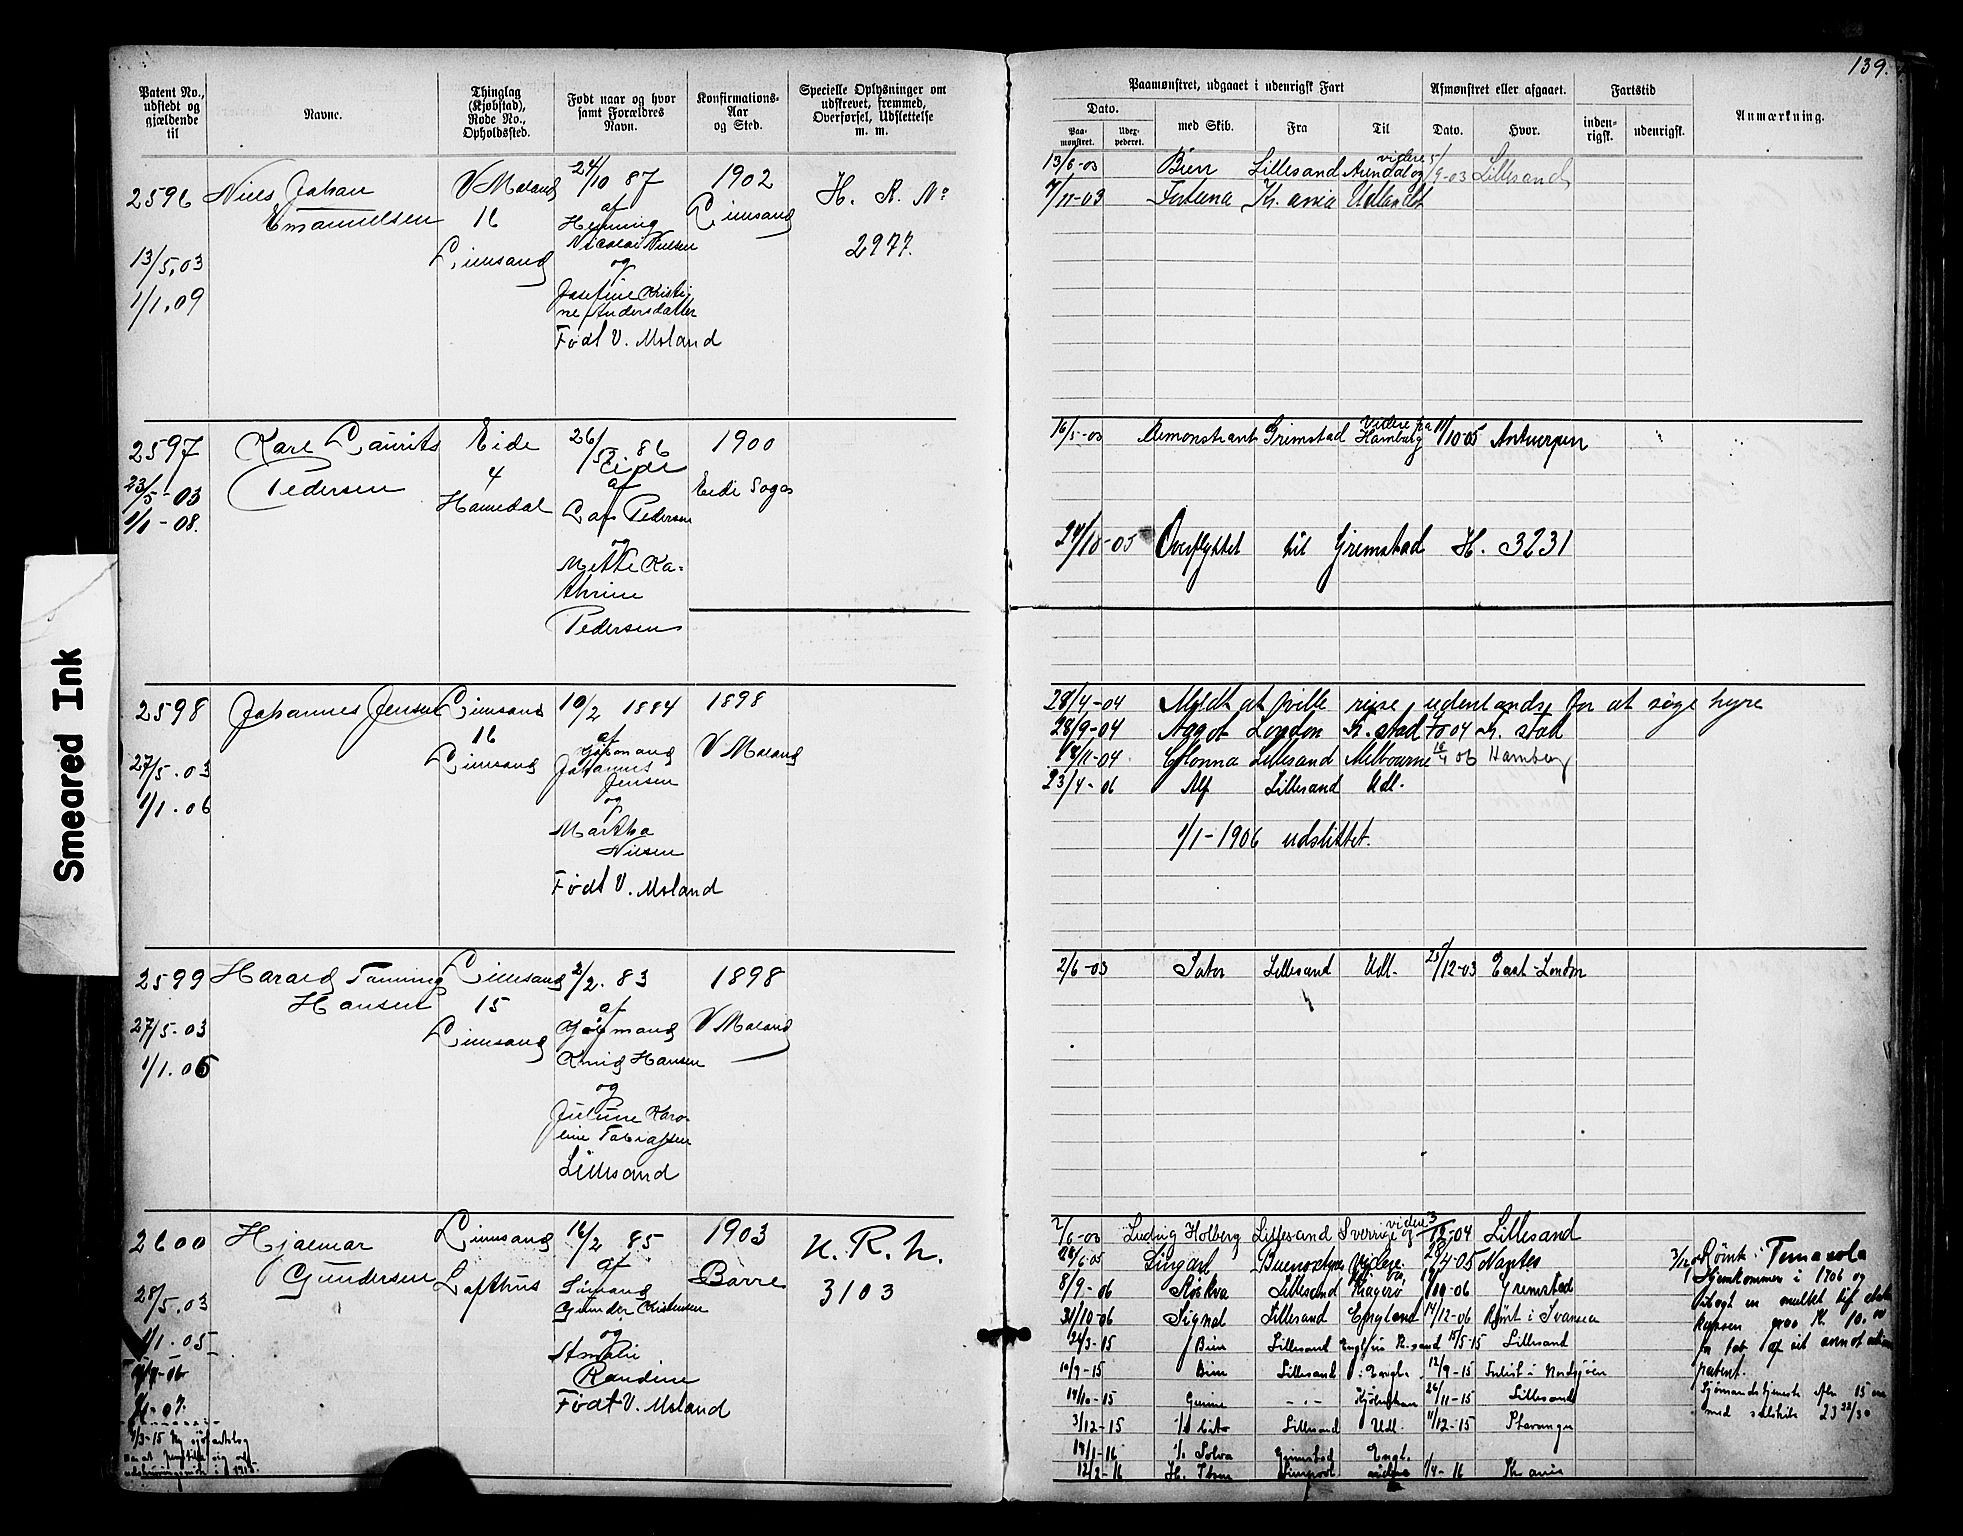 139.
Patent No., udstedt og gjældende til
Navne.
Thinglag (Kjøbstad), Rode No., Opholdssted.
Født naar og hvor samt Forældres Navn.
Konfirmations-Aar og Sted.
Specielle Oplysninger om udskrevet, fremmed, Overførsel, Udslettelse m. m.
Paamønstret, udgaaet i udenrigsk Fart
Afmønstret eller afgaaet.
Fartstid
Anmærkning.
Dato.
Paa-mønstret.
Udex-pederet.
med Skib.
Fra
Til
Dato.
Hvor.
inden-rigsk.
udenrigsk.
Smeared Ink
2596
13/5.03
1/1.09
Niels Johan
Emanuelsen
V Moland
16
Lillesand
24/10 87
af
Henning
Nicolai Nielsen
og
Josefine Kristi-
ne Andersdatter
Født V. Moland
1902
Lillesand
H. R. No
2977.
13/6-03 Bien Lillesand Arendal og videre 5/9-03 Lillesand
7/11-03 Fortuna Kr. ania Udlandet
2597
23/5-03
1/1-08.
Karl Laurits
Pedersen
Eide
4
Hannedal
26/5 86
Eide
af
Lars Pedersen
og
Mette Ka-
thrine
Pedersen
1900
Eide Sogn
16/5-03 Demonstrant Grimstad Videre fra Hamburg 11/10-05 Antwerpen
24/10-05 Overflyttet til Grimstad H. 3231
2598
27/5.03
1/1.06
Johannes Jensen
Lillesand
16
Lillesand
10/2 1884
af
Johannes
Jensen
og
Martha
Nilsen
Født V. Moland
1898
V Moland
28/4-04 Meldt at ville rejse udenlands for at søge hyre
28/9-04 Aagot London Fr. stad 4/10 04 Fr. stad
18/11-04 Glenna Lillesand Melbourne 18/4 06 Hamburg
23/4-06 Alf Lillesand Udl.
1/1-1906 udslettet.
2599
27/5.03
1/1.06
Harald Tanning
Hansen
Lillesand
15
Lillesand
2/2. 83
af
Sjømand
Knud Hansen
og
Juline Karo-
line Tobiassen
Lillesand
1898
V Moland
2/6-03 Sator Lillesand Udl. 23/12-03 East-London
2600
28/5.03
1/1.05
Hjalmar
Gundersen
Lillesand
Lofthus
16/2 85
af
Sømand
Gunder Kristensen
og
Amalie
Randine
Født V. Moland
1903
Borre
U. R. N.
3103
2/6-03 Ludvig Holberg Lillesand Sverrige og videre 3/12-04 Lillesand
Buenos Ayres Videre 28/4-05 Nantes
8/9-06 Røskva Lillesand Kragerø 1/10-06 Grimstad
31/10-06 Signal Lillesand England 14/12-06 Rømt i Svansea
24/3-15 Bien Lillesand 15/5-15 Lillesand
10/9-15 Bien Lillesand i Engl. 12/9-15 Forlist i Nordsjøen
14/10-15 Gunne 26/11-15 Lillesand
3/12-15 Cito Lillesand Udl. 11/12-15 Stavanger
18/1-16 Solva Grimstad Engl.
12/2-16 H. Stam Liverpool videre 1/4-16 Kr ania
Rømt i Temasola
Hjemkommen i 1906 og
10.00
patent.